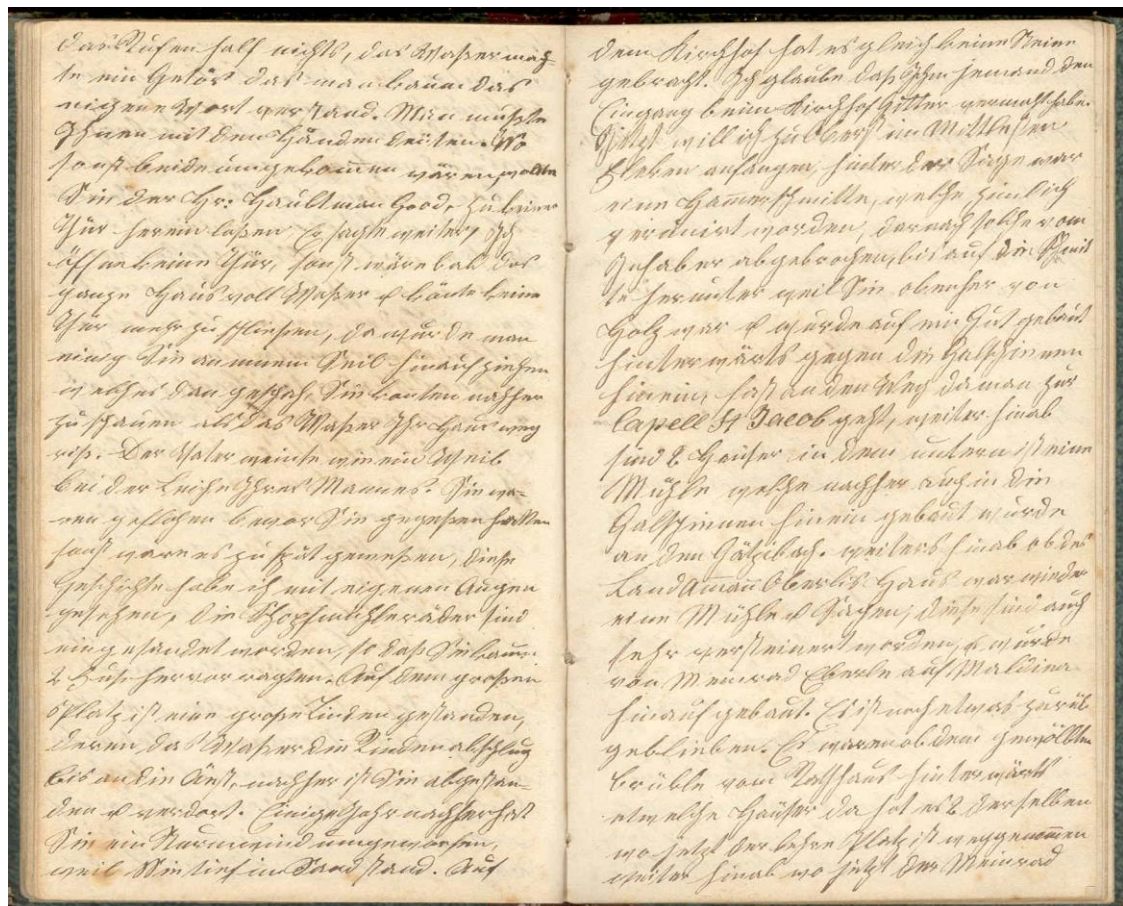 das Rufen half nichts, das Waßer mach-
te ein Getös das man kaum das
eigene Wort verstand. Man mußte
Ihnen mit den Händen deuten. Wo
sonst beide umgekommen wären, wollte
Sie der Hr: Haubtman Good, zu keiner
Thür herein laßen Er sagte weiter, Ich
öffne keine Thür, sonst wäre bald das
ganze Haus voll Waßer & könte keine
Thür mehr zu schließen, da wurde man
einig Sie an einem Seil hinauf ziehen
welches dan geschah, Sie konten nachher
zu schauen als das Waßer Ihr Haus weg
riß. Der Vater weinte wie ein Weib
bei der Leiche Ihres Mannes. Sie wa-
ren geflohen bevor Sie gegeßen hatten
sonst ware es zu spät geweßen, diese
Geschichte habe ich mit eigenen Augen
gesehen, die Schopfmühleräder sind
eingesandet worden, so daß Sie kaum
2 Zuse hervor ragten. Auf dem großen
Platz ist eine große Linden gestanden,
deren das Waßer die Rinden abschlug
bis an die Äest, nachher ist Sie abgestan-
den & verdort. Einige Jahr nachher hat
Sie ein Sturmwind umgeworfen,
weil Sie tief im Sand stand. Auf
dem Kirchhof hat es gleich keine Steine
gebracht. Ich glaube daß Ihm jemand den
Eingang beim Kirchhof Gitter vermacht habe.
Jetzt will ich zu Oberst im Mittlesten
Fleken anfangen, hinter der Sage war
eine Hamerschmitte, welche zimlich
veruinirt worden, darnach solche vom
Inhaber abgebrochen, bis auf die Schmit
te herunter weil Sie obenher von
Holz war & wurde auf ein Gut gebaut
hinterwärts gegen die Galschinnen
hinein, fast an den Weg da man zur
Capell St Jacob geht, weiter hinab
sind 2 Häuser in dem untern ist eine
Mühle welche nachher auch in die
Galschinnen hinein gebaut wurde
an den Götzibach. weiters hinab ob des
LandAmann Oberlis Haus war wieder
eine Mühle & Sagen, diese sind auch
sehr versteinert worden, & wurde
von Meinrad Eberle auf Maldina
hinauf gebaut. Es ist noch etwas zurük
geblieben. Es waren ob dem gewölbten
Brükle vom Rathhaus hinterwärts
etwelche Häuser da hat es 2 derselben
wo jetzt der lehre Platz ist weggenommen
weiter hinab wo jetzt der Meinrad